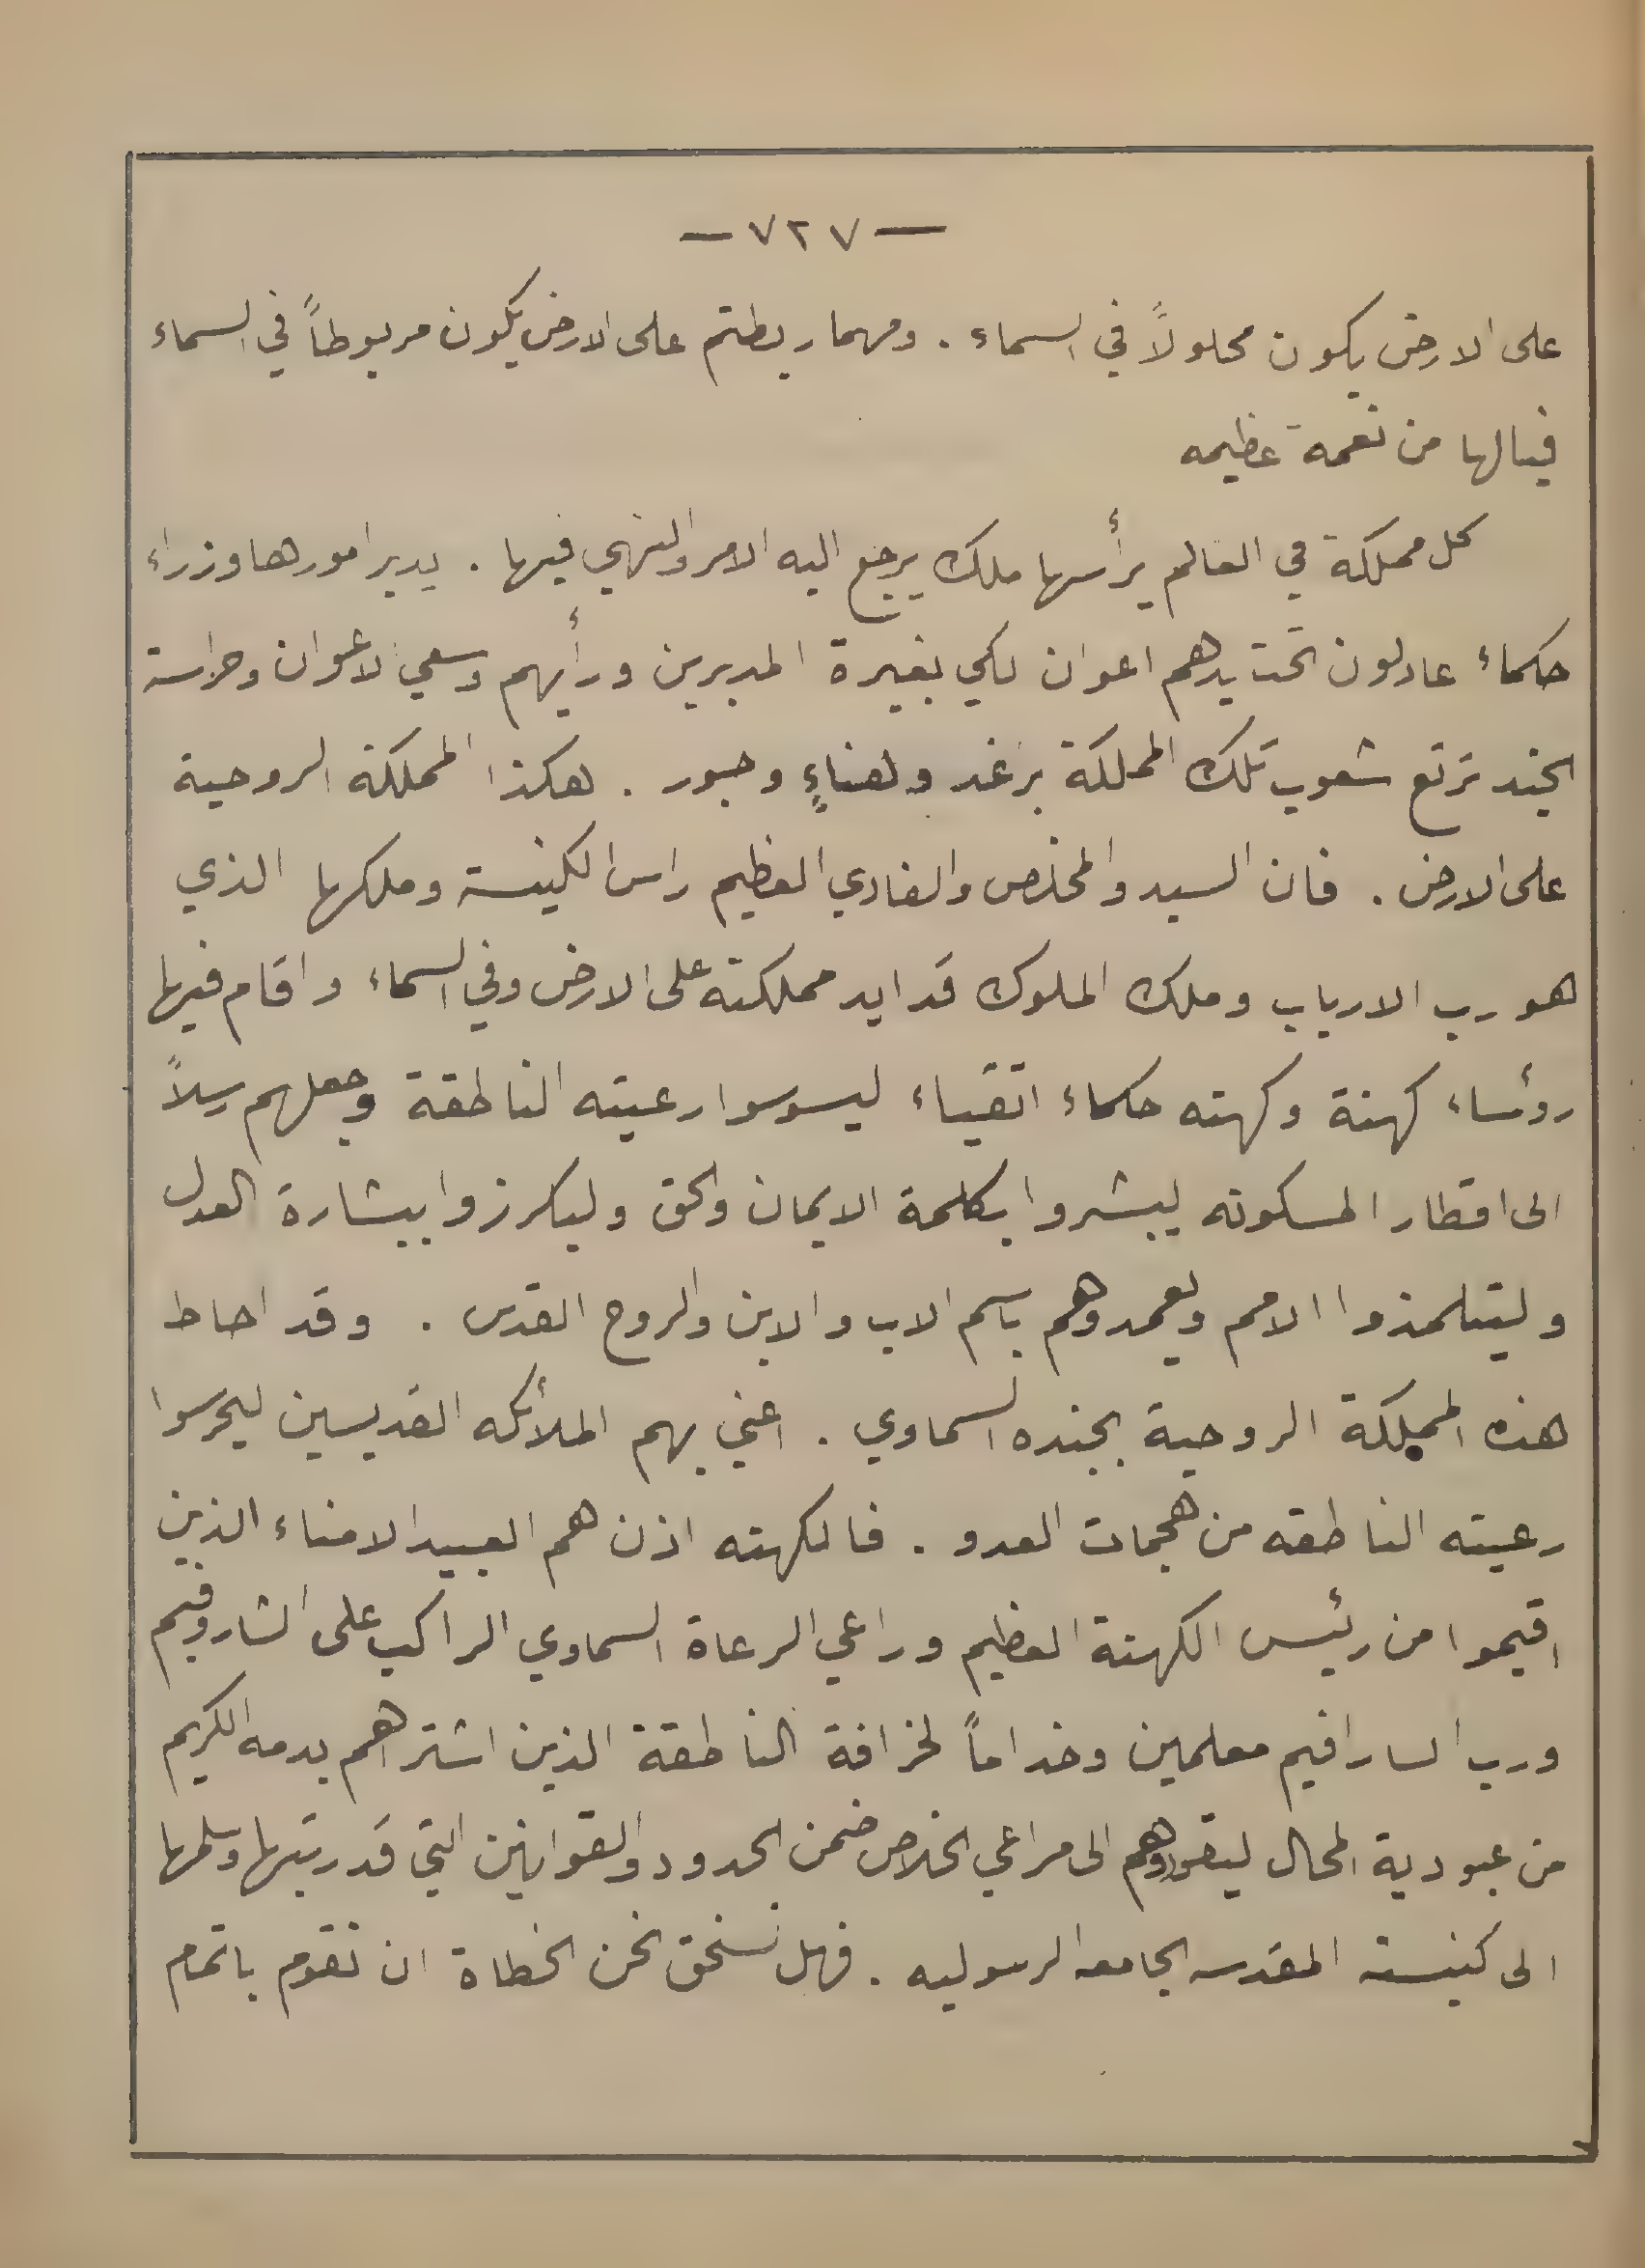 — ٧٢٧ —
على الارض يكون محلولاً في السماء . ومهما ربطتم على الارض يكون مربوطاً في السماء
فيالها من نعمة عظيمه
كل مملكة في العالم يرأسها ملك يرجع اليه الامر والنهي فيها . يدير امورها وزراء
حكماء عادلون تحت يدهم اعوان لكي بغيرة المديرين ورأيهم وسعي الاعوان وحراسة
الجند ترتع شعوب تلك المملكة برغد وهناءٍ وحبور . هكذا المملكة الروحية
على الارض . فان السيد والمخلص والفادي العظيم راس الكنيسة وملكها الذي
هو رب الارباب وملك الملوك قد ايد مملكته على الارض وفي السماء واقام فيها
رؤساء كهنة وكهنه حكماء اتقياء ليسوسوا رعيته الناطقة وجعلهم رسلاً
الى اقطار المسكونه ليبشروا بكلمة الايمان والحق وليكرزوا ببشارة العدل
وليتلمذوا الامم ويعمدوهم باسم الاب والابن والروح القدس . وقد احاط
هذه المملكة الروحية بجنده السماوي . اعني بهم الملأئكه القديسين ليحرسوا
رعيته الناطقه من هجمات العدو . فالكهنه اذن هم العبيد الامناء الذين
اقيموا من رئيس الكهنة العظيم وراعي الرعاة السماوي الراكب على الشاروفيم
ورب السارافيم معلمين وخداماً لخرافة الناطقة الذين اشتراهم بدمه الكريم
من عبودية المحال ليقودوهم الى مراعي الخلاص ضمن الحدود والقوانين التي قد رتبها وسلمها
الى كنيسته المقدسه الجامعه الرسوليه . فهل نستحق نحن الخطاة ان نقوم باتمام